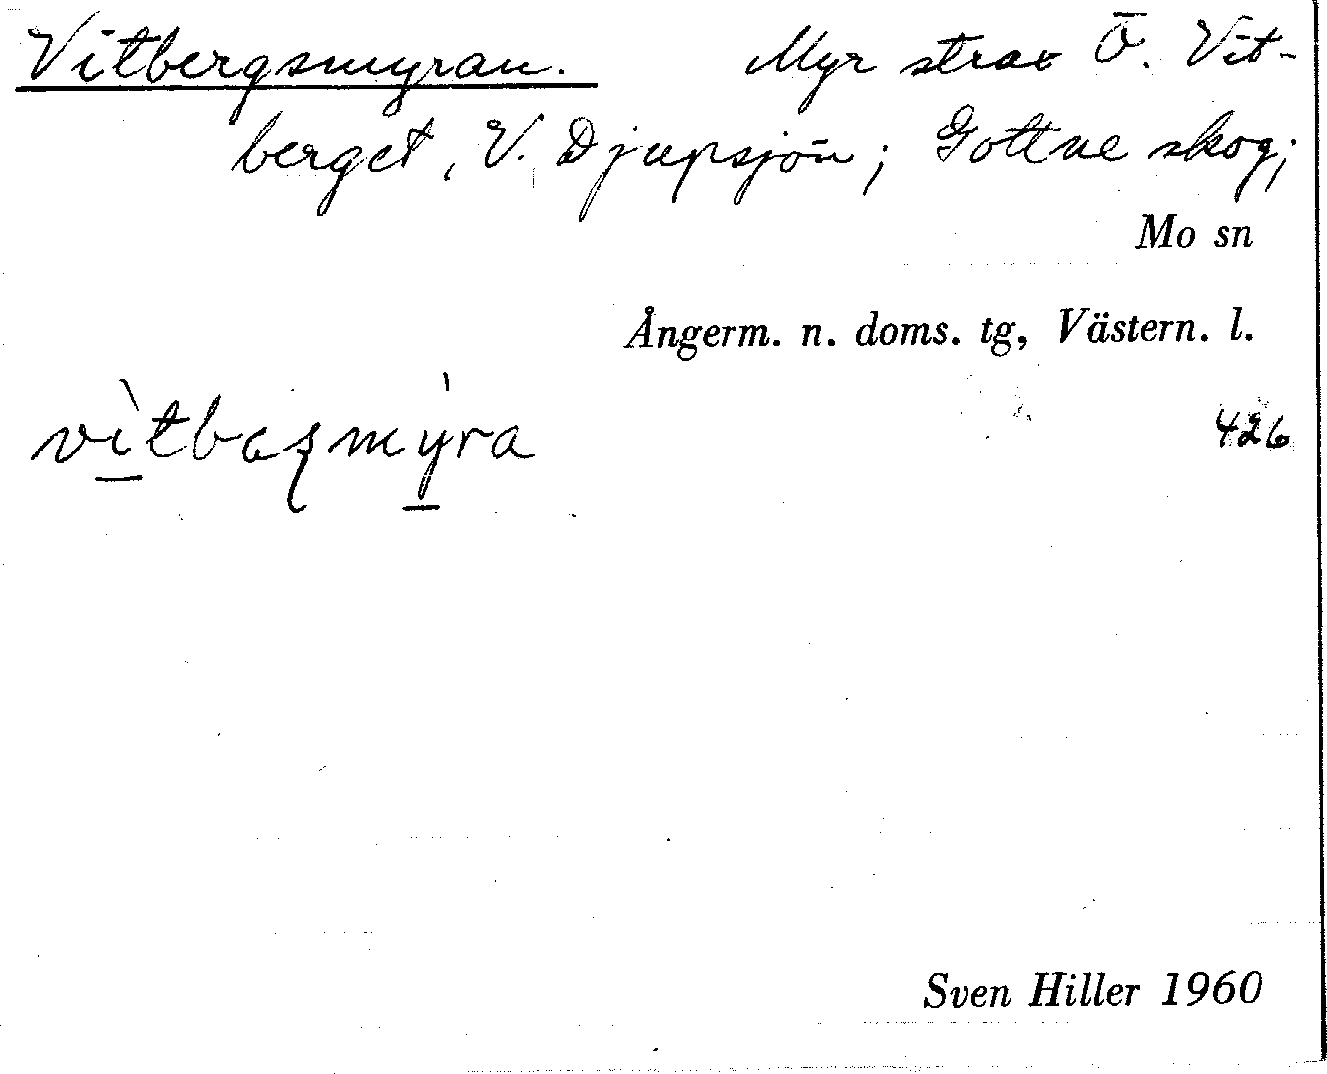 Vitbergsmyran. Myr strax Ö. Vit-
berget, V. Djupsjön; Gottne skog;
Mo sn
Ångerm. n. doms. tg, Västern. l.
426
Sven Hiller 1960